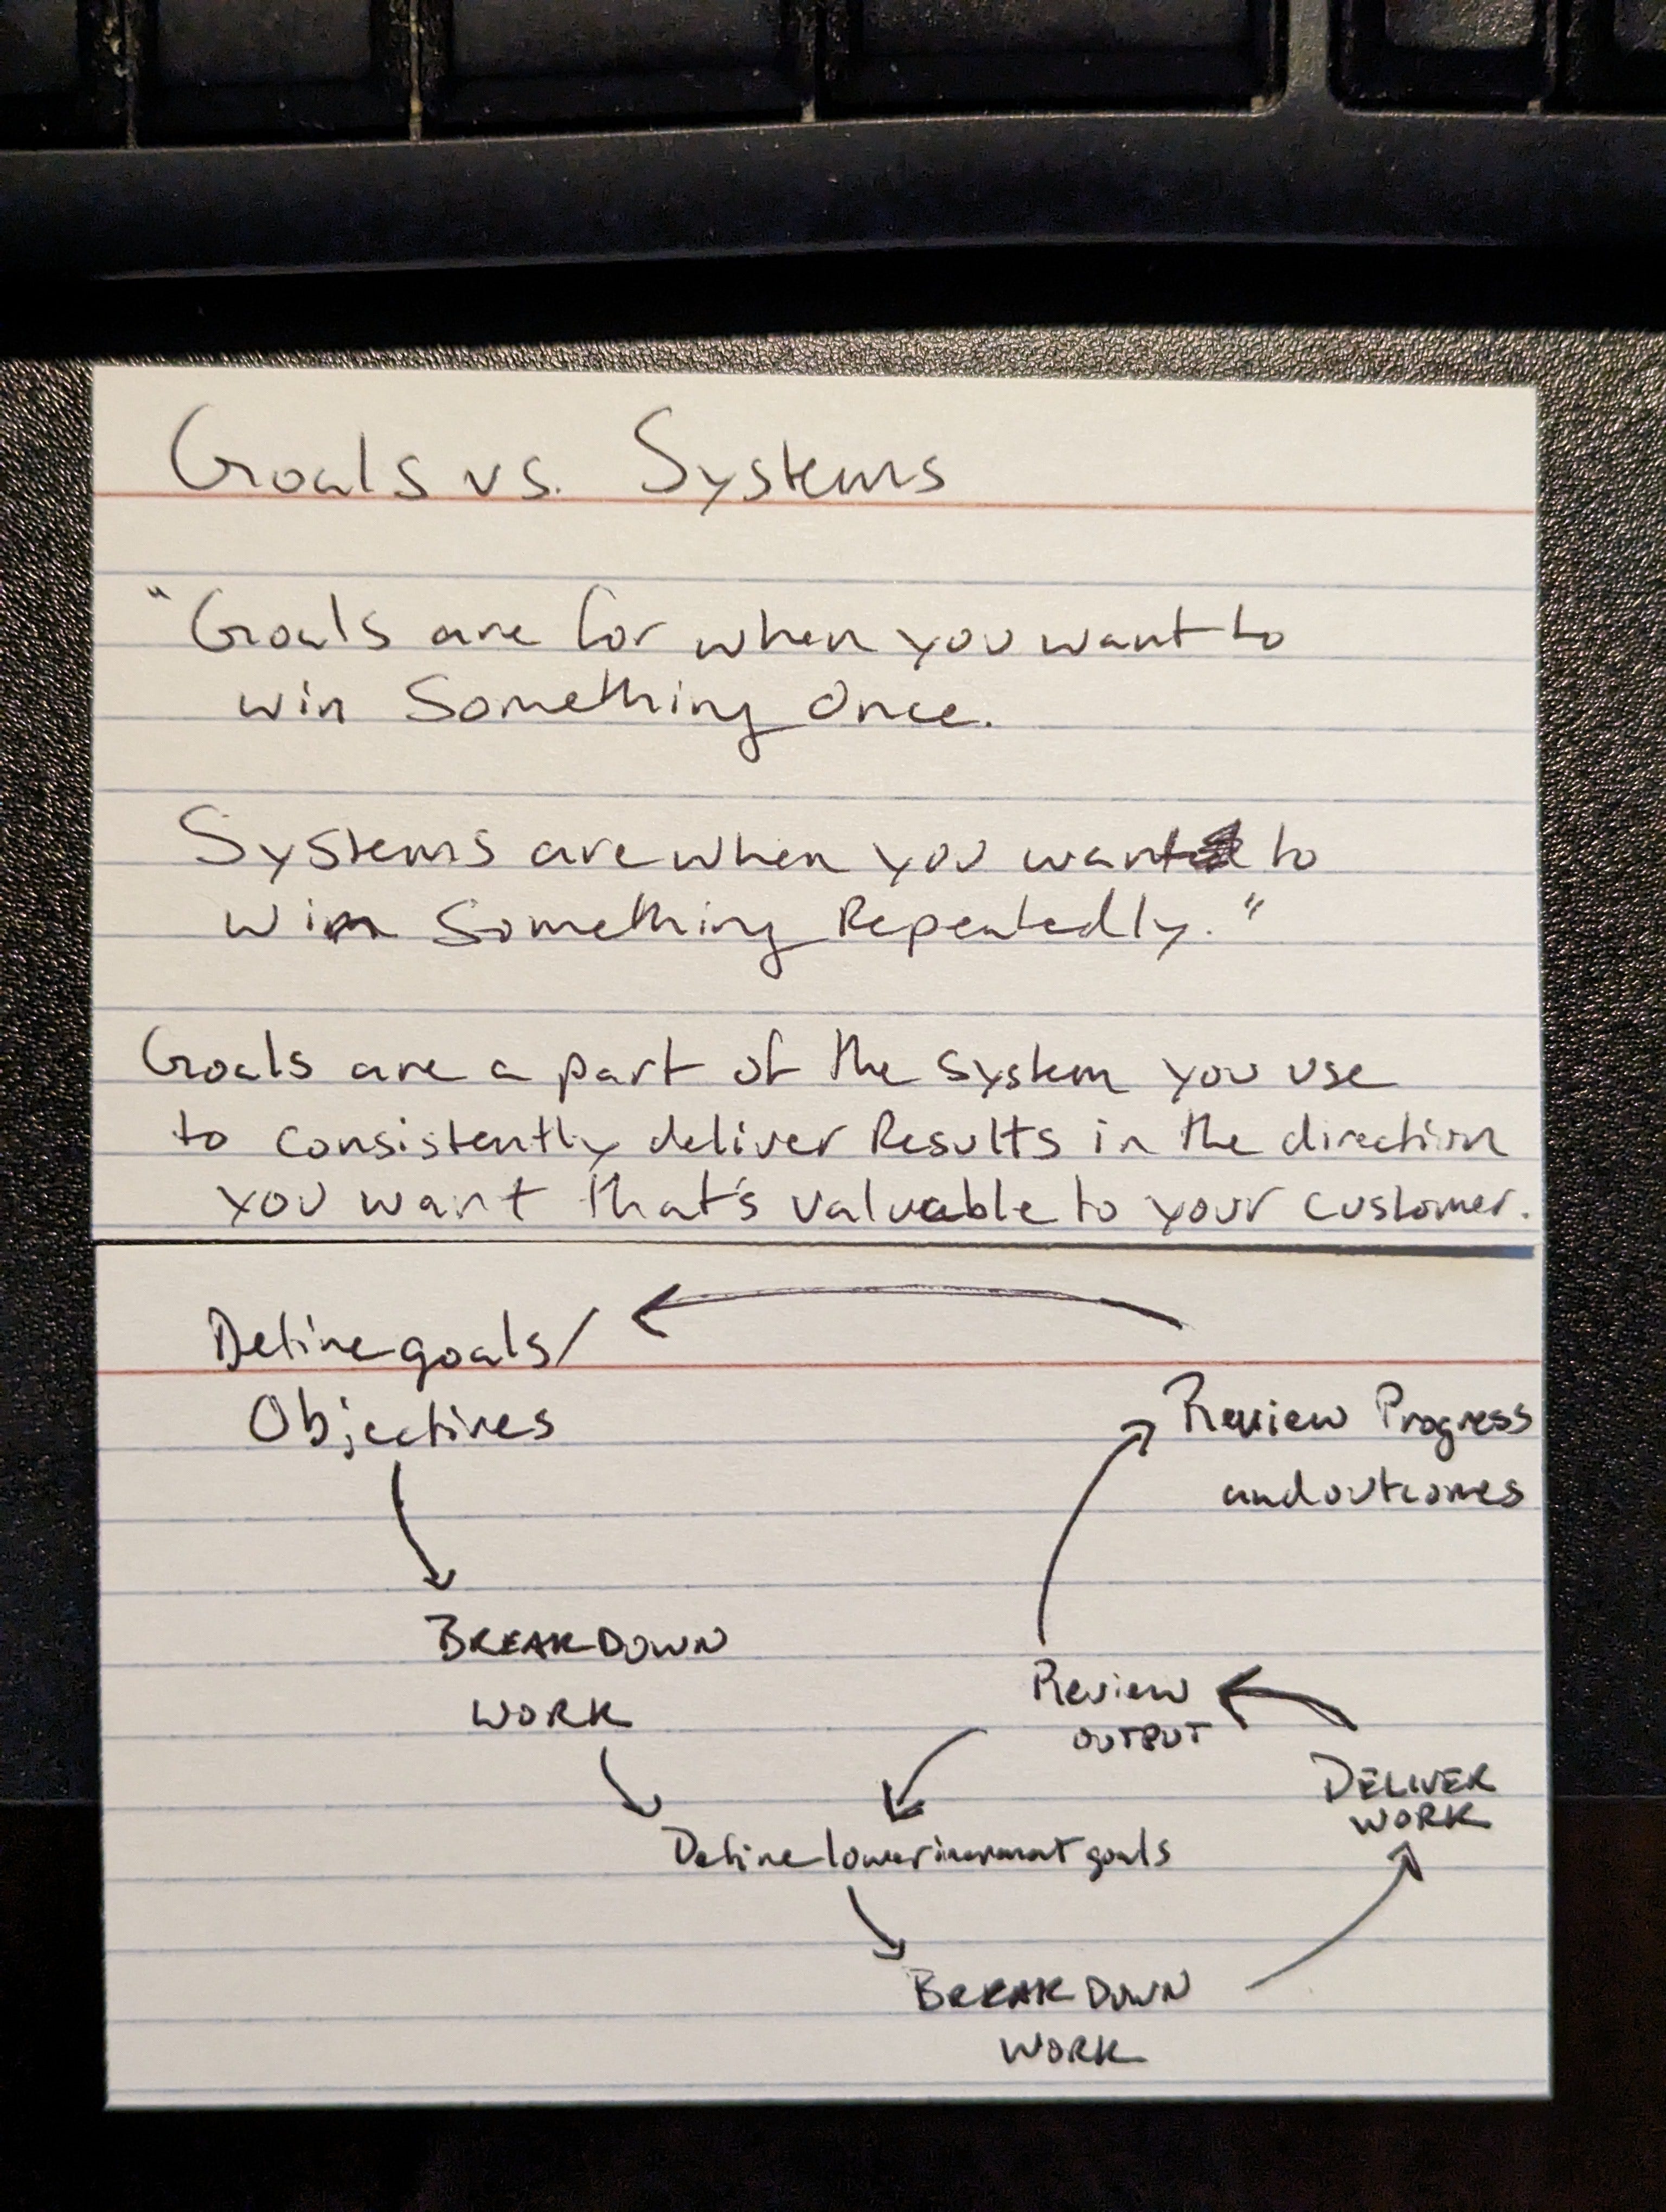 Goals vs. Systems
"Goals are for when you want to
win Something Once.
Systems are when you want to
win Something Repeatedly."
Goals are a part of the system you use
to consistently deliver Results in the direction
you want that's valuable to your customer.
Define goals/
Objectives
Review Progress
and outcomes
BREAK DOWN
WORK
Review
OUTPUT
DELIVER
WORK
Define lower increment goals
BREAK DOWN
WORK